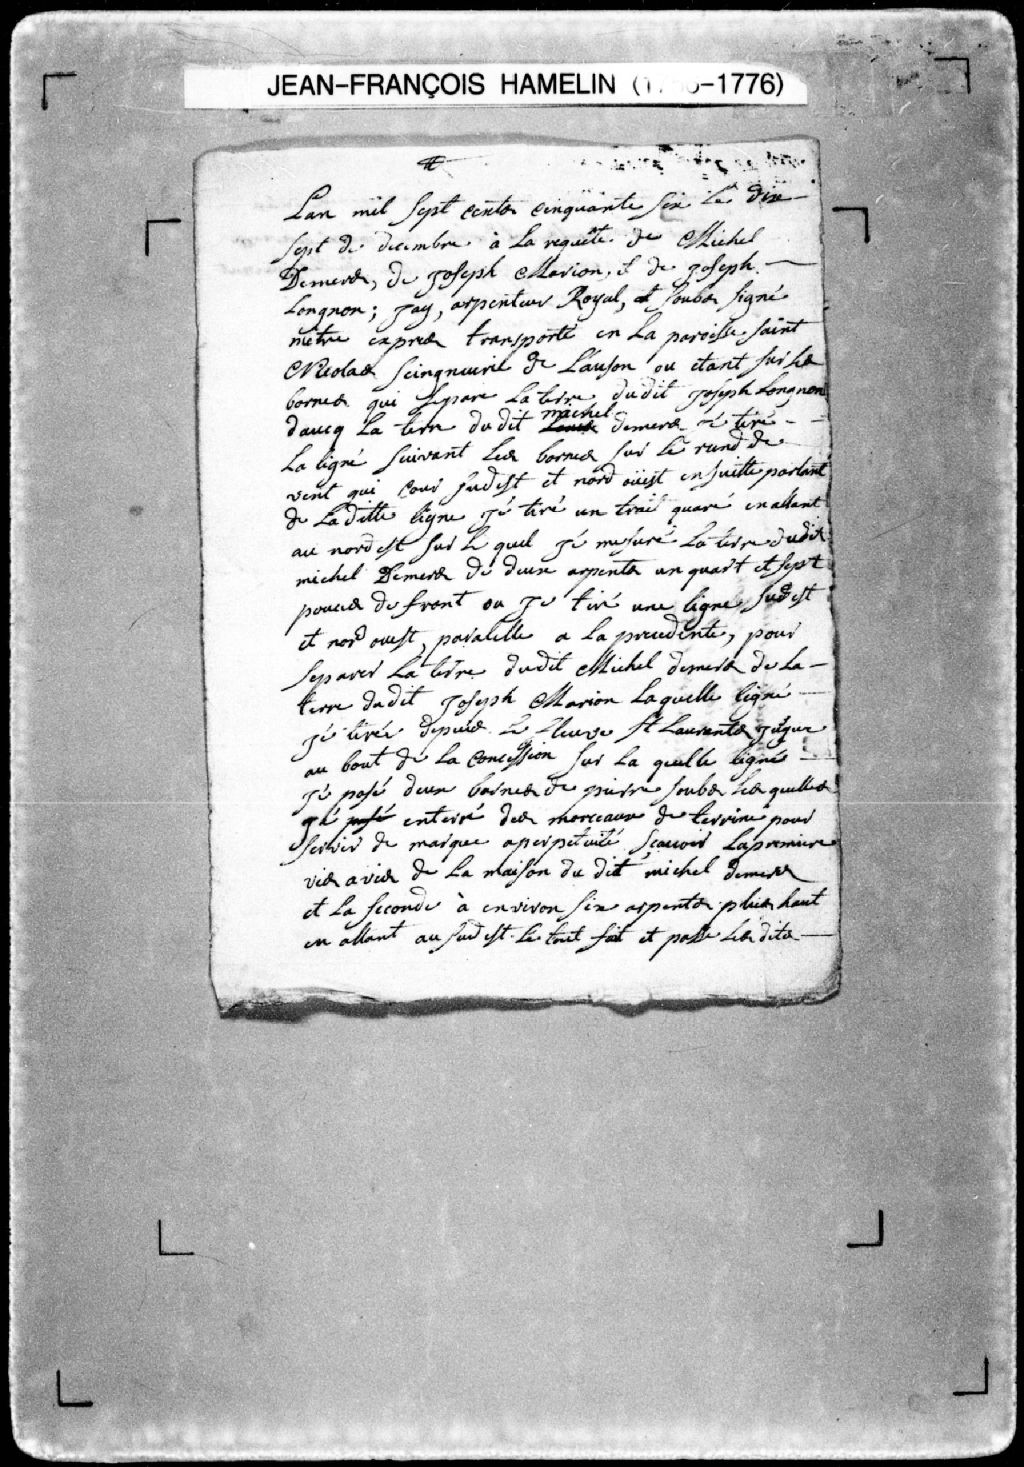 JEAN-FRANÇOIS HAMELIN (1 -1776)
Lan mil Sept cents cinquante six Le dix
Sept de decembre à La requête de Michel
Demers, de Joseph Marion, et de Joseph
Longnon; Jay, arpenteur Royal, et soubs signé
mètre exprès transporté en La paroisse saint
Nicolas Seingneurie de Lauson ou etant sur les
bornes qui separe La terre dudit Joseph Longnon
daucq La terre dudit michel demers Jé tiré
La ligné suivant Les bornes sur Le rund de
vent qui cour Sudest et nord oüest ensuitte partant
de Laditte ligne Jé tiré un trait quaré en allant
au nordest sur Le quel Jé mesuré La terre dudit
michel Demers de deux arpents un quart et sept
pouces de front ou Je tiré une ligne sudest
et nord ouest, paralelle a La precedente, pour
separer La terre dudit Michel demers de La
terre dudit Joseph Marion Laquelle ligné
Jé tirée depuis Le fleuve St Laurents Jusque
au bout de La Concession sur La quelle ligné
Jé posé deux bornes de pierre soubs Les quelles
Jé posé enterré des morceaux de terrine pour
servir de marque a perpetuité Scavoir La premiere
vis a vis de La maison du dit michel demers
et La seconde à environ six arpents plus haut
en allant au sudest. Le tout fait et passé Les dits